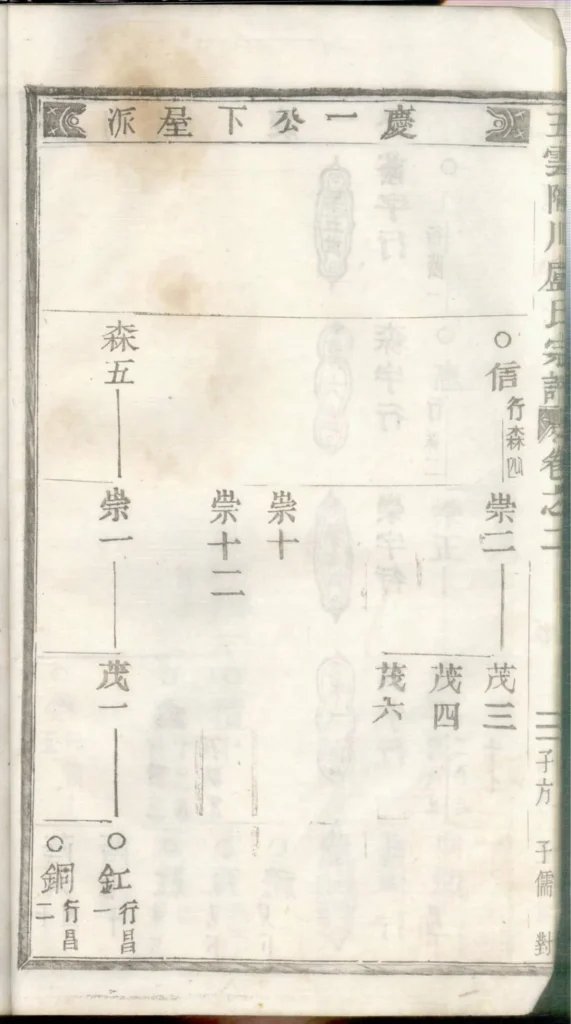 慶一公下屋派
五雲隋川盧氏宗譜
卷之二
三
子方 子儒 對
信 行森四
崇二
茂三
茂四
茂六
崇十
崇十二
森五
崇一
茂一
釭 行昌一
銅 行昌二